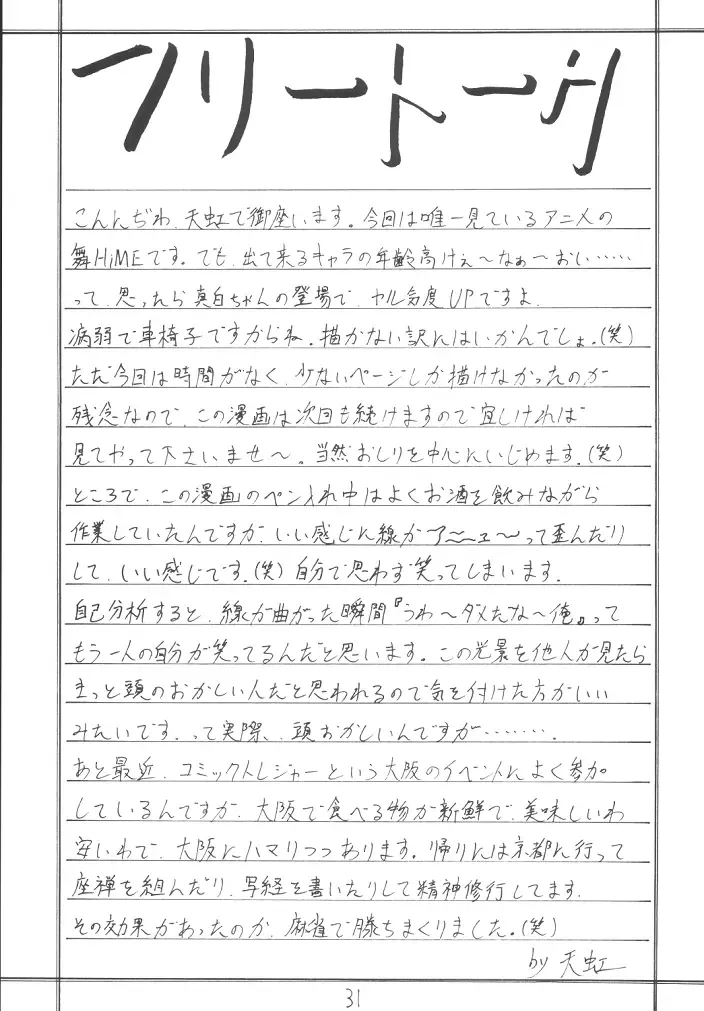 フリートーク
こんんぢわ、天虹で御座います。今回は唯一見ているアニメの
舞HiMEです。でも、出て来るキャラの年齢高けぇ～なぁ～おい……
って、思ったら真白ちゃんの登場で、ヤル気度UPですよ、
病弱で車椅子ですからね、描かない訳にはいかんでしょ。(笑)
ただ今回は時間がなく、少ないページしか描けなかったのが
残念なので、この漫画は次回も続けますので宜しければ
見てやって下さいませ～。当然おしりを中心にいじめます。(笑)
ところで、この漫画のペン入れ中はよくお酒を飲みながら
作業していたんですが、いい感じに線が って歪んだり
して、いい感じです。(笑)自分で思わず笑ってしまいます。
自己分析すると、線が曲がった瞬間『うわ～ダメだな～俺』って
もう一人の自分が笑ってるんだと思います。この光景を他人が見たら
きっと頭のおかしい人だと思われるので気を付けた方がいい
みたいです、って実際、頭おかしいんですが………
あと最近、コミックトレジャーという大阪のイベントによく参加
しているんですが、大阪で食べる物が新鮮で、美味しいわ
安いわで、大阪にハマりつつあります。帰りには京都に行って
座禅を組んだり、写経を書いたりして精神修行してます。
その効果があったのか、麻雀で勝ちまくりました。(笑)
by 天虹
31